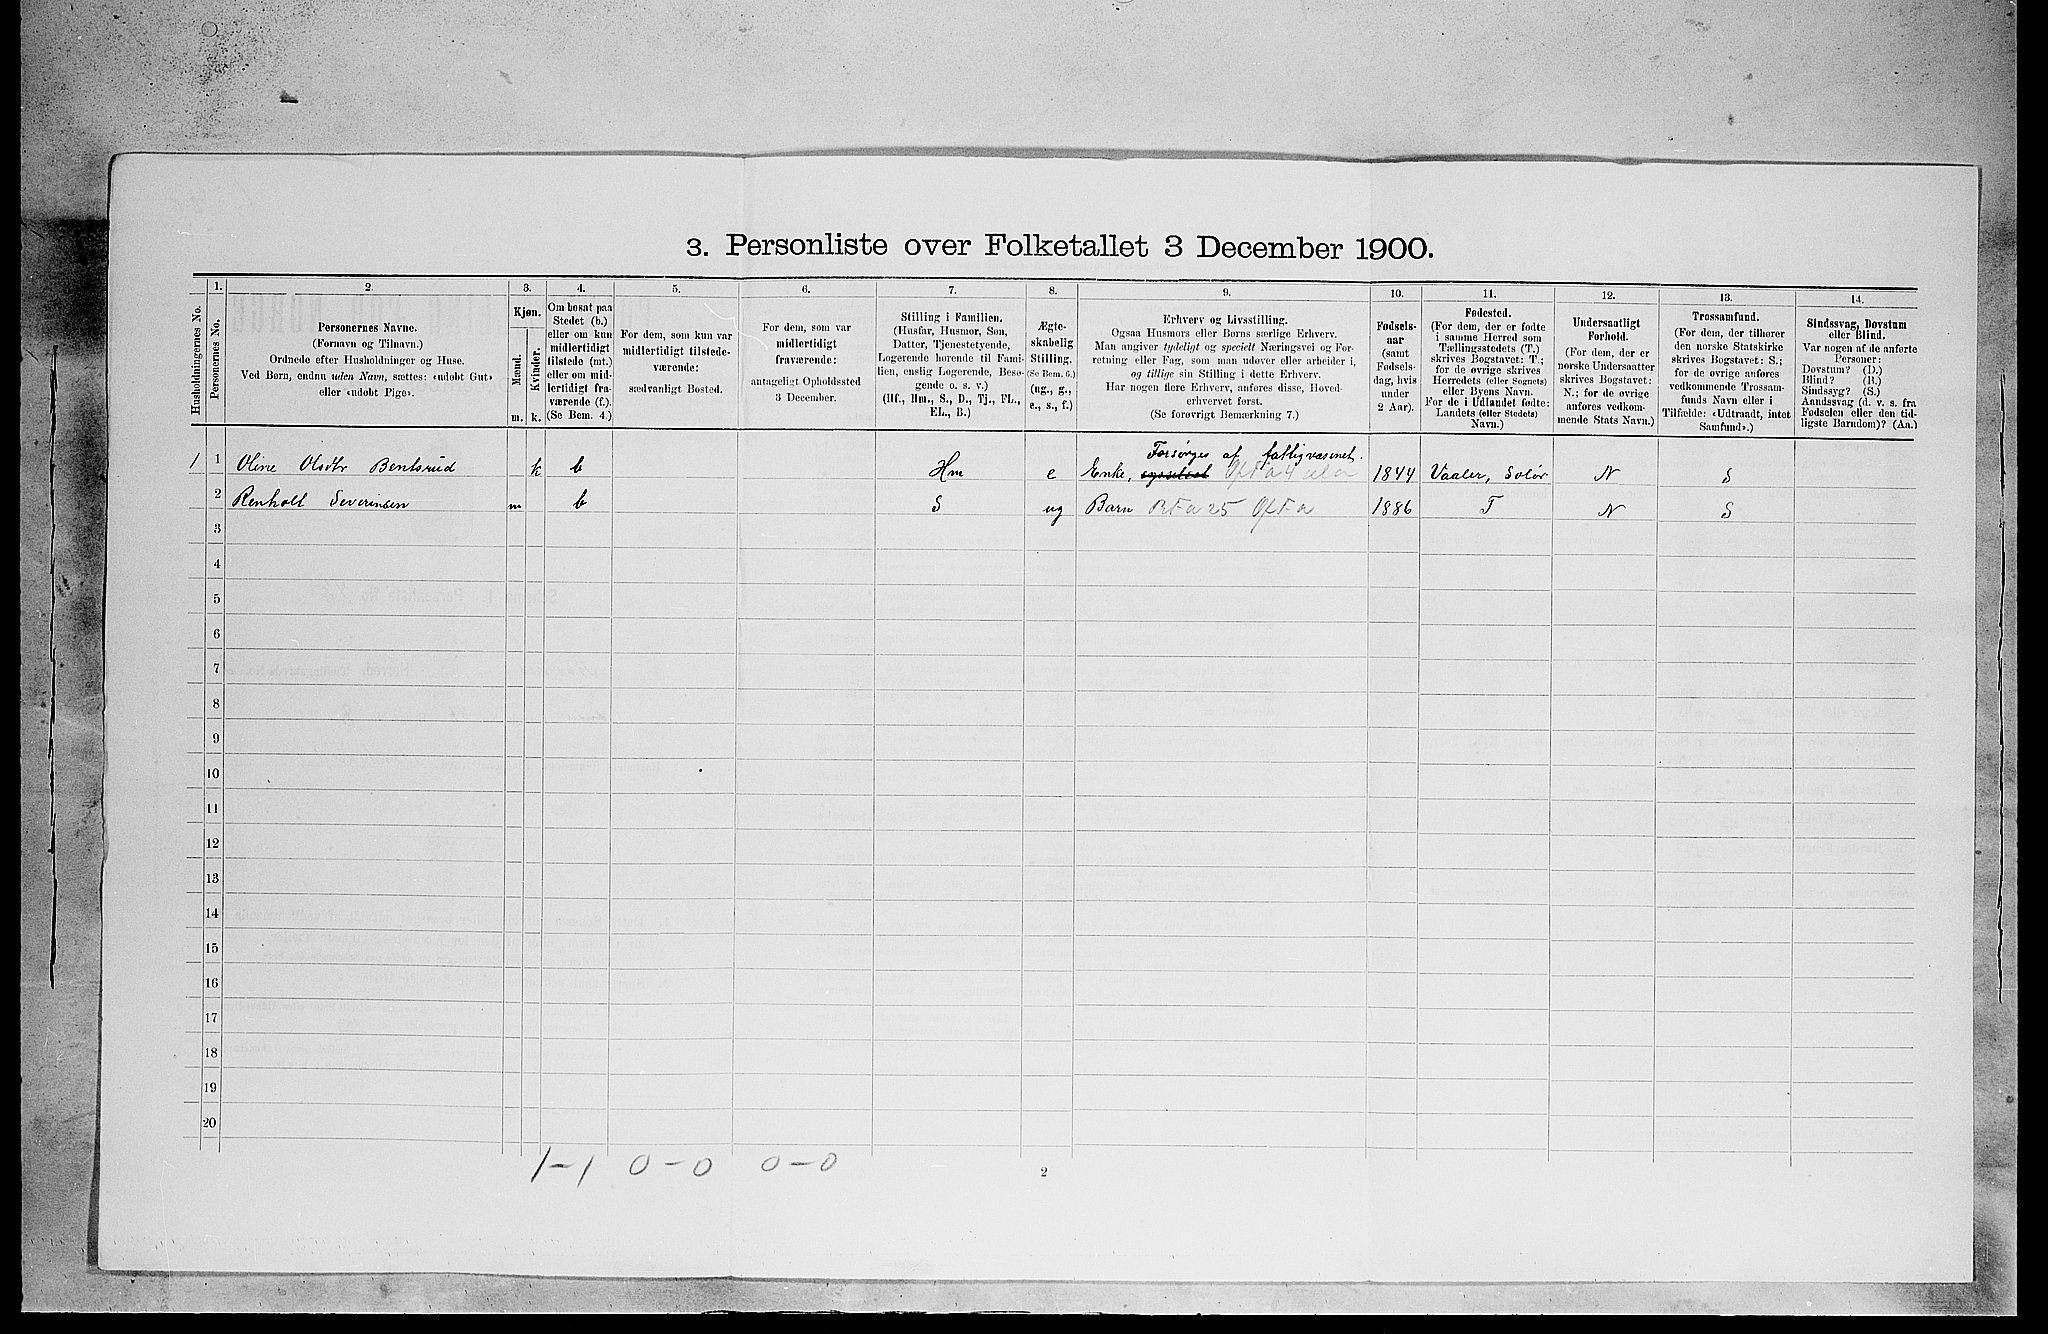 3. Personliste over Folketallet 3 December 1900.
Husholdningernes No.
1.
Personernes No.
2.
Personernes Navne.
(Fornavn og Tilnavn.)
Ordnede efter Husholdninger og Huse.
Ved Børn, endnu uden Navn, sættes: «udøbt Gut»
eller «udøbt Pige».
3.
Kjøn.
Mænd.
Kvinder.
m. k.
4.
Om bosat paa
Stedet (b.)
eller om kun
midlertidigt
tilstede (mt.)
eller om mid-
lertidigt fra-
værende (f.).
(Se Bem. 4.)
5.
For dem, som kun var
midlertidigt tilstede-
værende:
sædvanligt Bosted.
6.
For dem, som var
midlertidigt
fraværende:
antageligt Opholdssted
3 December.
7.
Stilling i Familien.
(Husfar, Husmor, Søn,
Datter, Tjenestetyende,
Logerende hørende til Fami-
lien, enslig Logerende, Besø-
gende o. s. v.)
(Hf., Hm., S., D., Tj., FL.,
EL., B.)
8.
Ægte-
skabelig
Stilling.
(Se Bem. 6.)
(ug., g.,
e., s., f.)
9.
Erhverv og Livsstilling.
Ogsaa Husmors eller Børns særlige Erhverv.
Man angiver tydeligt og specielt Næringsvei og For-
retning eller Fag, som man udøver eller arbeider i,
og tillige sin Stilling i dette Erhverv.
Har nogen flere Erhverv, anføres disse, Hoved-
erhvervet først.
(Se forøvrigt Bemærkning 7.)
10.
Fødsels-
aar
(samt
Fødsels-
dag, hvis
under
2 Aar).
11.
Fødested.
(For dem, der er fødte
i samme Herred som
Tællingsstedets (T.)
skrives Bogstavet: T.;
for de øvrige skrives
Herredets (eller Sognets)
eller Byens Navn.
For de i Udlandet fødte:
Landets (eller Stedets)
Navn.)
12.
Undersaatligt
Forhold.
(For dem, der er
norske Undersaatter
skrives Bogstavet:
N.; for de øvrige
anføres vedkom-
mende Stats Navn.)
13.
Trossamfund.
(For dem, der tilhører
den norske Statskirke
skrives Bogstavet: S.;
for de øvrige anføres
vedkommende Trossam-
funds Navn eller i
Tilfælde: «Udtraadt, intet
Samfund».)
14.
Sindssvag, Døvstum
eller Blind.
Var nogen af de anførte
Personer:
Døvstum? (D.)
Blind? (B.)
Sindssyg? (S.)
Aandssvag (d. v. s. fra
Fødselen eller den tid-
ligste Barndom)? (Aa.)
Forsørges af fattigvæsenet.
1 1 Oline Olsdtr Bentsrud k b Hm e Enke, 1844 Vaaler, Solør N S
2 Renholt Severinsen m b S ug Barn 1886 T N S
3
4
5
6
7
8
9
10
11
12
13
14
15
16
17
18
19
20
1-1 0-0 0-0
2